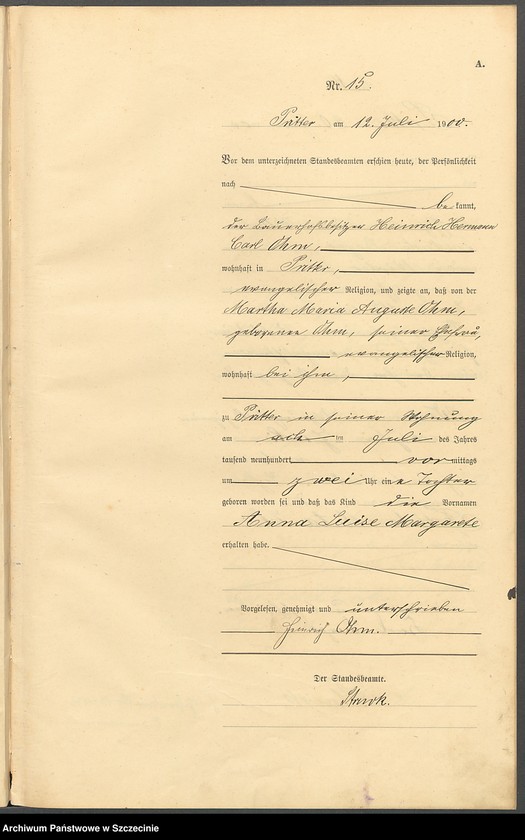 A.
Nr. 15.
Pritter am 12. Juli 1900.
Vor dem unterzeichneten Standesbeamten erschien heute, der Persönlichkeit
nach
be kannt,
der Bauerhofsbesitzer Heinrich Hermann
Carl Ohm,
wohnhaft in Pritter,
evangelischer Religion, und zeigte an, daß von der
Martha Maria Auguste Ohm,
geborenen Ohm, seiner Ehefrau,
evangelischer Religion,
wohnhaft bei ihm,
zu Pritter in seiner Wohnung
am acht ten Juli des Jahres
tausend neunhundert vor mittags
um zwei Uhr ein e Tochter
geboren worden sei und daß das Kind die Vornamen
Anna Luise Margarete
erhalten habe.
Vorgelesen, genehmigt und unterschrieben
Heinrich Ohm.
Der Standesbeamte.
Archiwum Państwowe w Szczecinie